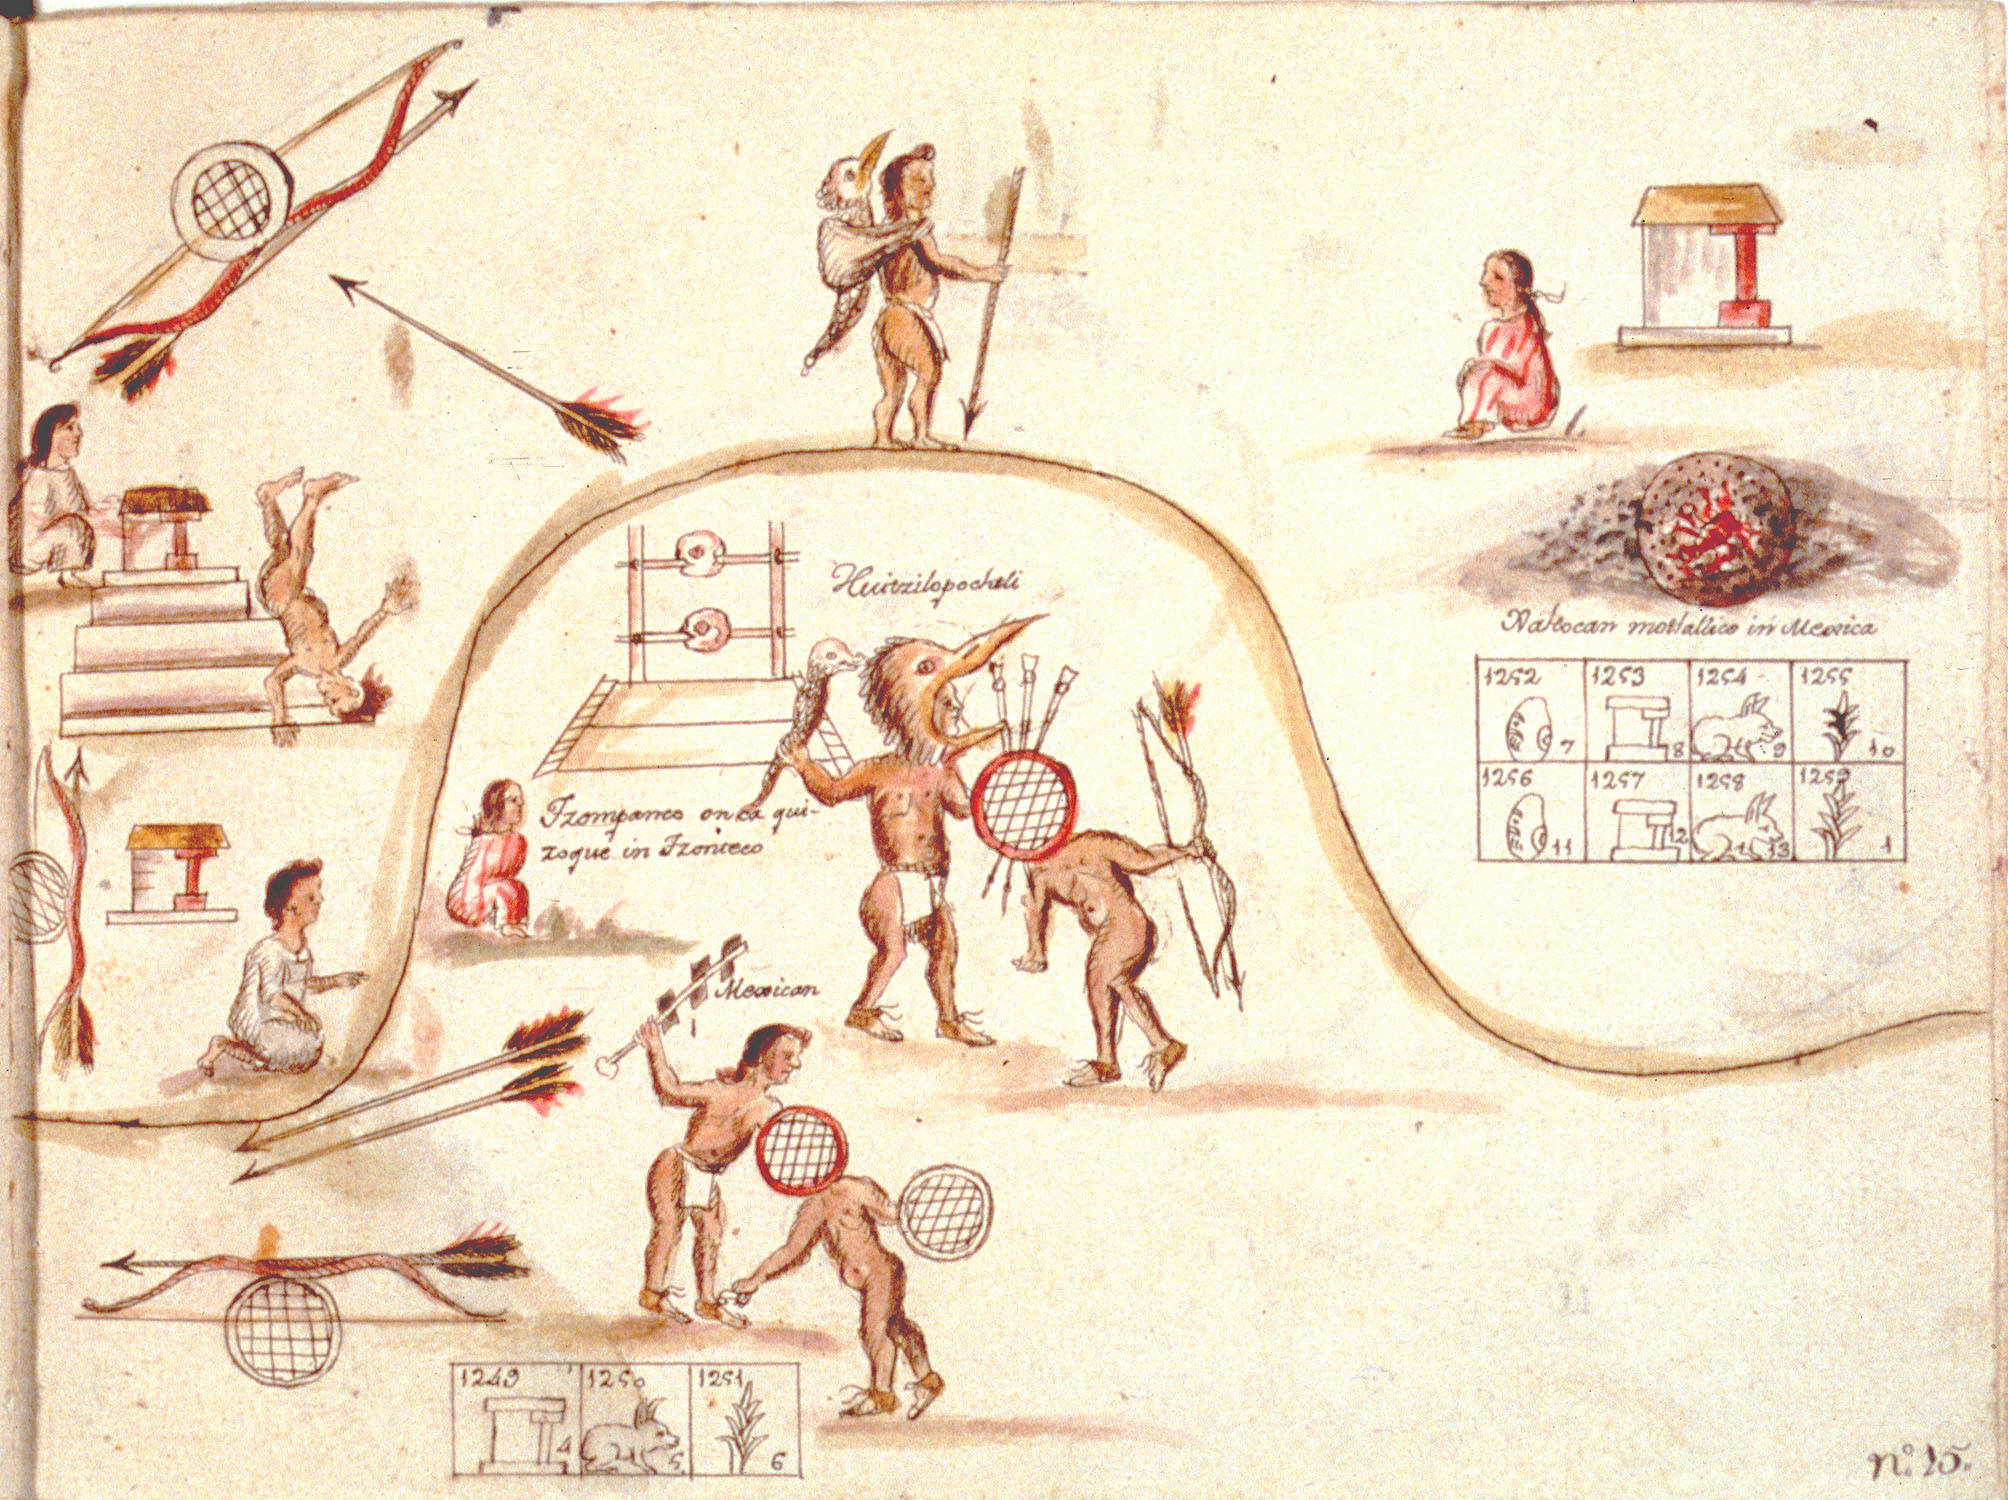 Huitzilopochtli
Tzompanco onca qui-
zoque in Tzonteco
Mexican
Naltocan motlallico in Mexica
1252 1253 1254 1255
7 8 9 10
1256 1257 1258 1259
11 12 13 1
1249 1250 1251
4 5 6
n.º 15.